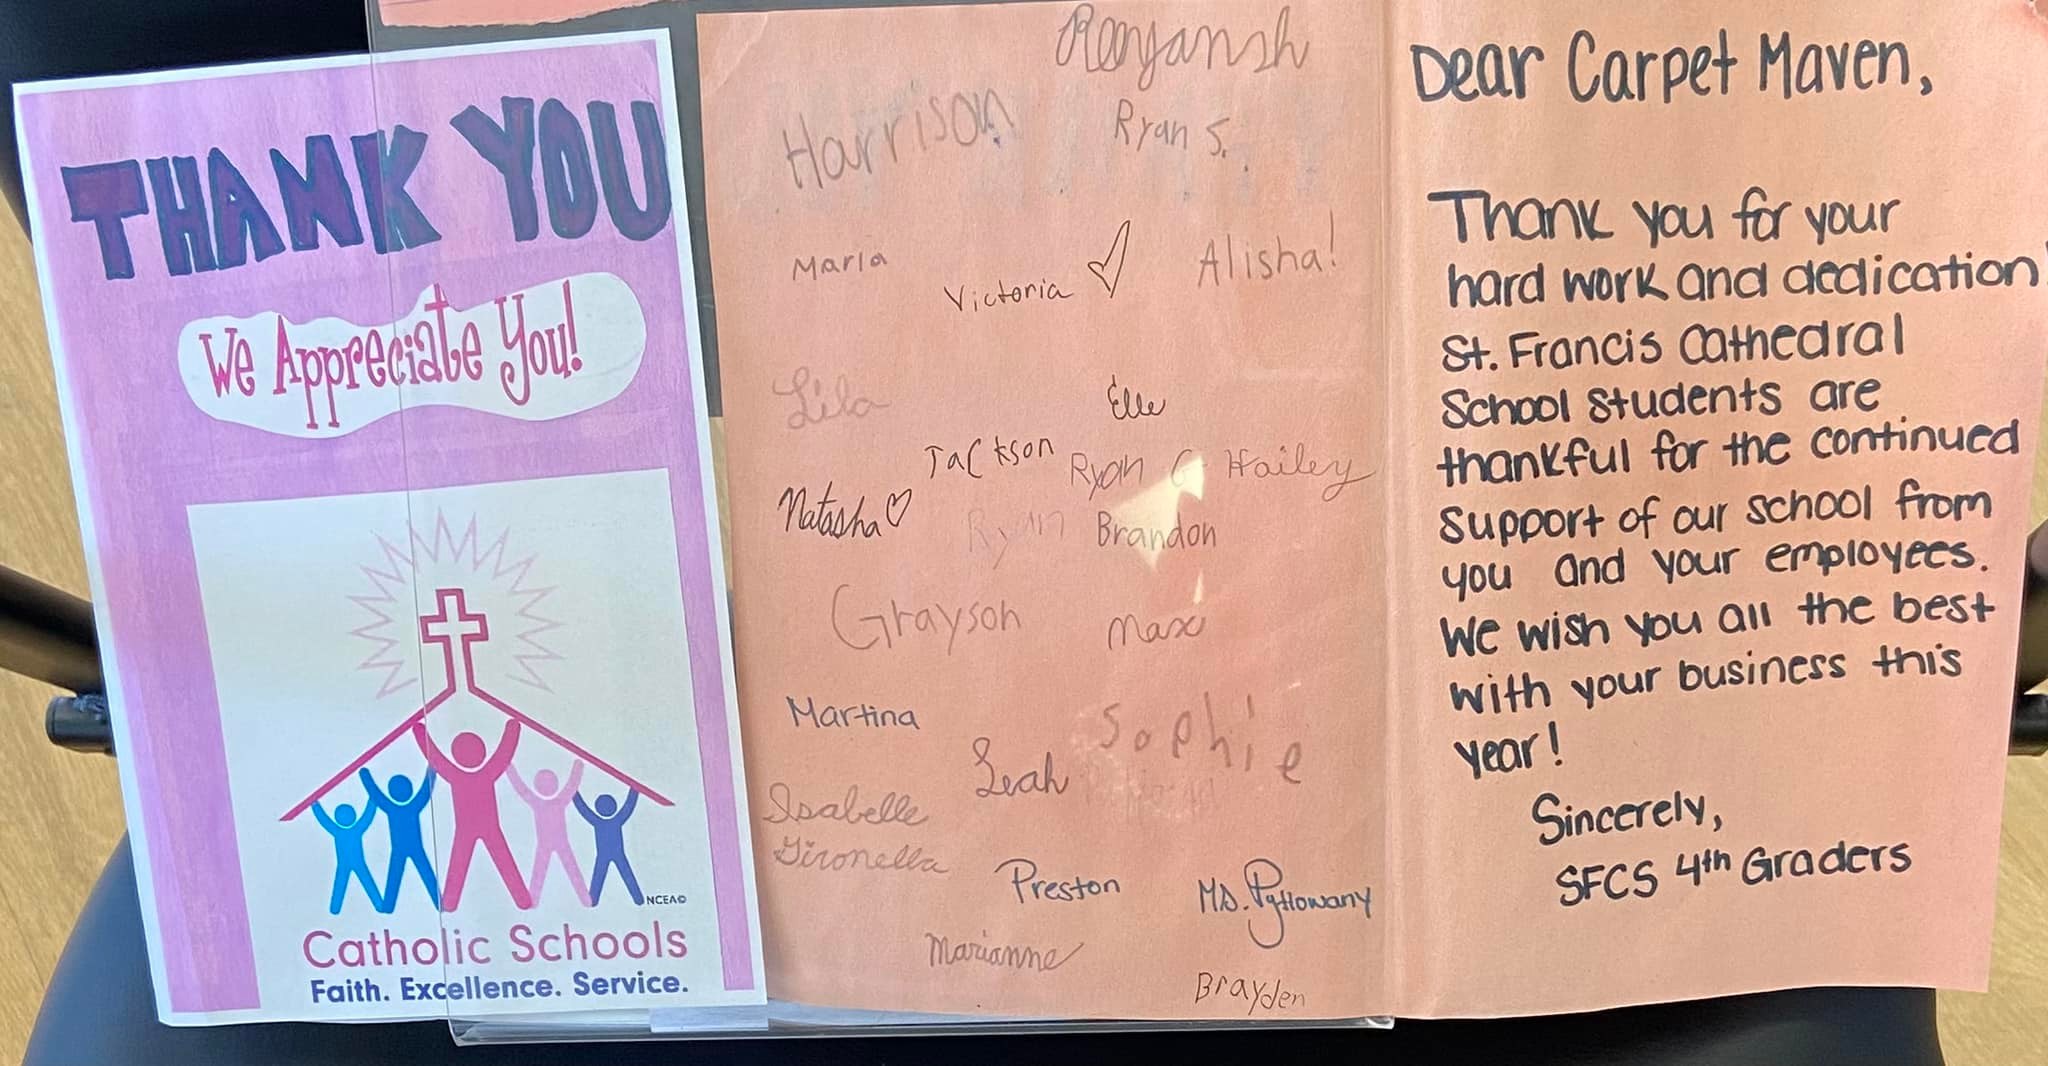 THANK YOU
We Appreciate You!
NCEA©
Catholic Schools
Faith. Excellence. Service.
Harrison
Ryan S.
Maria
Victoria
Alisha!
Lila
Elle
Jackson
Ryan G
Hailey
Natasha
Ryan
Brandon
Grayson
Max
Martina
Sophie
Leah
Isabelle
Gironella
Preston
Ms. Pyttowany
Marianne
Brayden
Dear Carpet Maven,
Thank you for your
hard work and dedication!
St. Francis Cathedral
School students are
thankful for the continued
support of our school from
you and your employees.
We wish you all the best
with your business this
year!
Sincerely,
SFCS 4th Graders